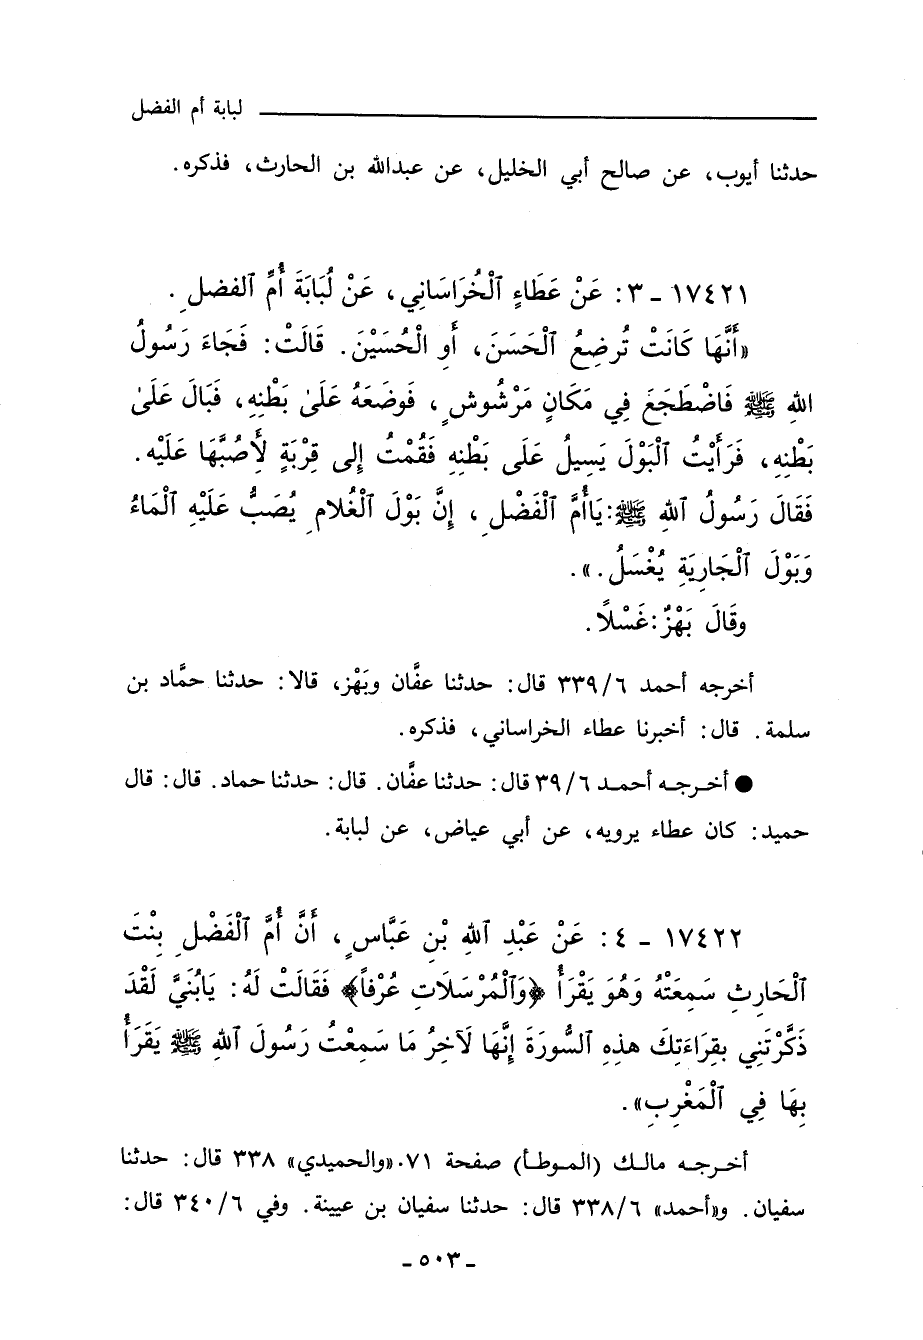 لبابة أم الفضل
حدثنا أيوب، عن صالح أبي الخليل، عن عبدالله بن الحارث، فذكره.
١٧٤٢١ - ٣: عَنْ عَطَاءٍ ٱلْخُرَاسَانِي، عَنْ لُبَابَةَ أُمِّ ٱلفضلِ.
«أَنَّهَا كَانَتْ تُرضِعُ ٱلْحَسَنَ، أَوِ الْحُسَيْنَ. قَالَتْ: فَجَاءَ رَسُولُ
اللهِ ﷺ فَاضْطَجَعَ فِي مَكَانٍ مَرْشُوشٍ، فَوضَعَهُ عَلَىٰ بَطْنِهِ، فَبَالَ عَلَىٰ
بَطْنِهِ، فَرَأَيْتُ ٱلْبَوْلَ يَسِيلُ عَلَى بَطْنِهِ فَقُمْتُ إلى قِرْبَةٍ لأَصُبَّهَا عَلَيْه.
فَقَالَ رَسُولُ ٱللهِ ﷺ:يَاأُمَّ ٱلْفَضْلِ، إِنَّ بَوْلَ ٱلْغُلامِ يُصَبُّ عَلَيْهِ ٱلْمَاءُ
وَبَوْلَ ٱلْجَارِيَةِ يُغْسَلُ.».
وقَالَ بَهْزٌ:غَسْلًا.
أخرجه أحمد ٣٣٩/٦ قال: حدثنا عفَّان وبَهْز، قالا: حدثنا حمَّاد بن
سلمة. قال: أخبرنا عطاء الخراساني، فذكره.
● أخرجه أحمد ٣٩/٦ قال: حدثنا عفَّان. قال: حدثنا حماد. قال: قال
حميد: كان عطاء يرويه، عن أبي عياض، عن لبابة.
١٧٤٢٢ - ٤: عَنْ عَبْدِ ٱللهِ بْنِ عَبَّاسٍ، أَنَّ أُمَّ ٱلْفَضْلِ بِنْتَ
ٱلْحَارِثِ سَمِعَتْهُ وَهُوَ يَقْرَأُ ﴿وَٱلْمُرْسَلَاتِ عُرْفاً﴾ فَقَالَتْ لَهُ: يَابُنَيَّ لَقْدَ
ذَكَّرْتَنِي بِقِرَاءَتِكَ هذِهِ ٱلسُّورَةَ إِنَّهَا لَآخِرُ مَا سَمِعْتُ رَسُولَ ٱللهِ ﷺ يَقرَأُ
بِهَا فِي ٱلْمَغْرِبِ».
أخرجه مالك (الموطأ) صفحة ٧١.«والحميدي» ٣٣٨ قال: حدثنا
سفيان. و«أحمد» ٣٣٨/٦ قال: حدثنا سفيان بن عيينة. وفي ٣٤٠/٦ قال:
- ٥٠٣ -